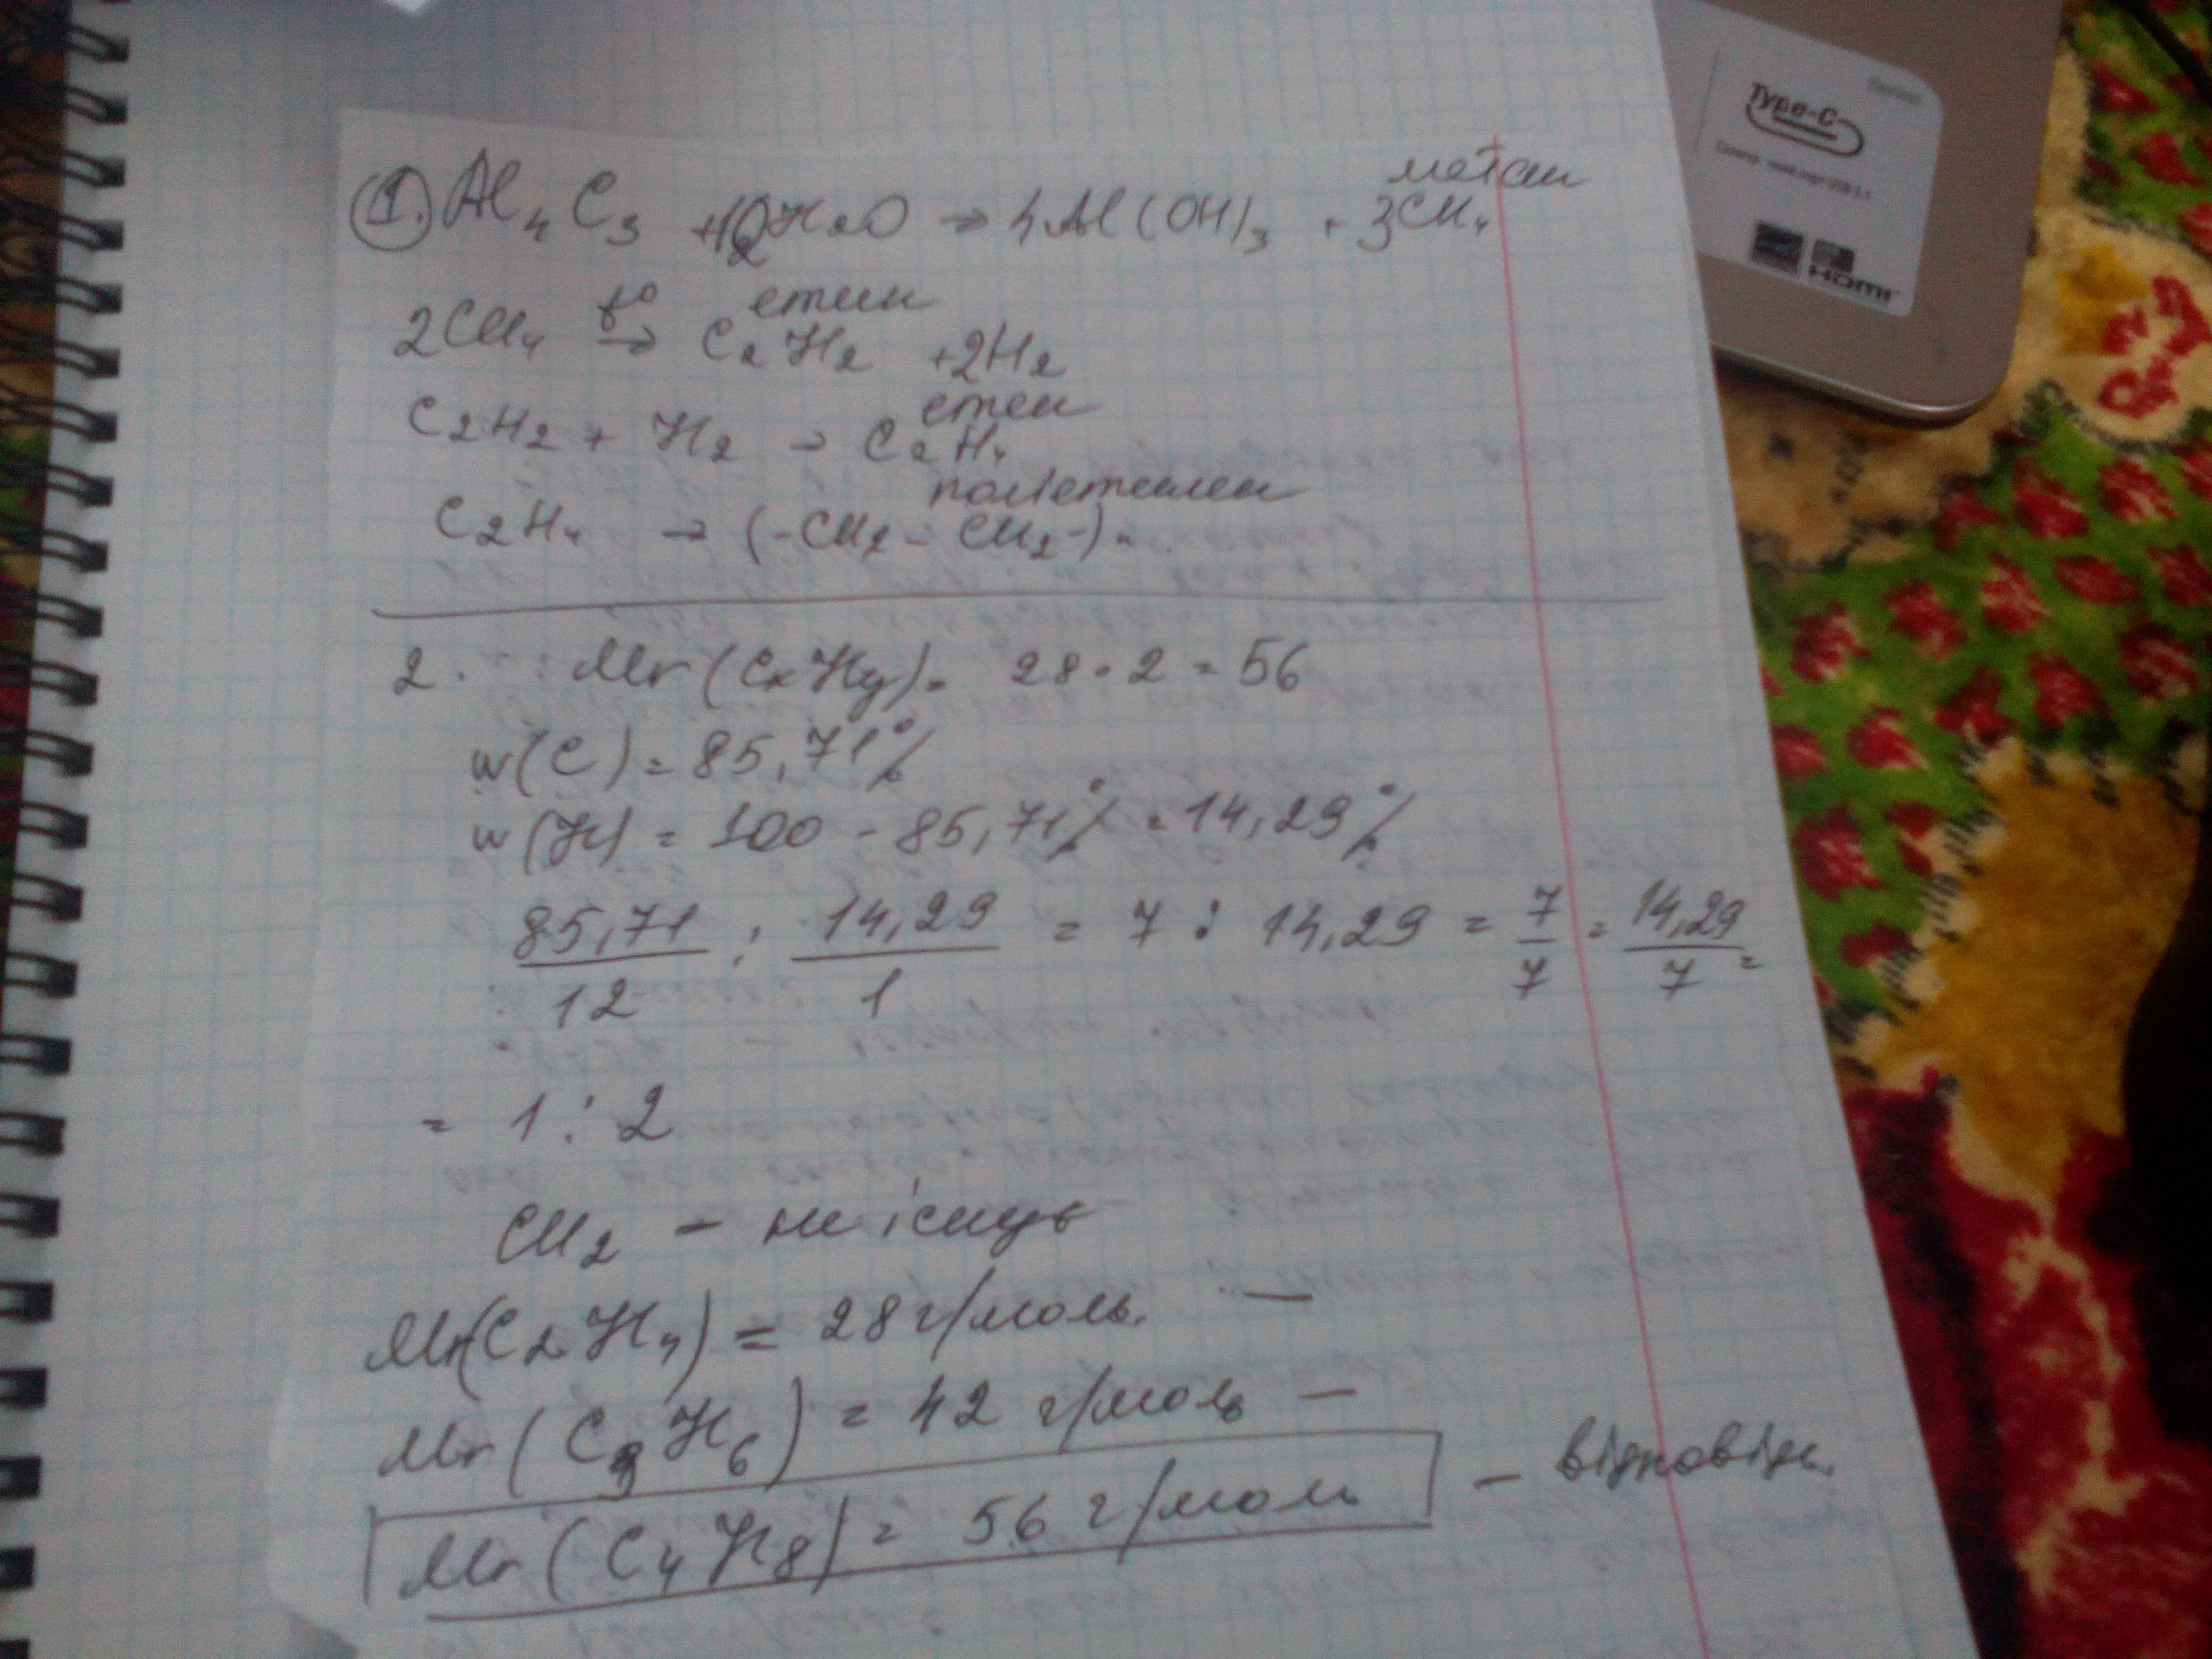 метан
1. Al4C3 + 12H2O → 4Al(OH)3 + 3CH4
етин
2CH4 t° → C2H2 + 2H2
етен
C2H2 + H2 → C2H4
поліетилен
C2H4 → (-CH2 - CH2-)n
2. Mr (CxHy) = 28 · 2 = 56
w(C) = 85,71%
w(H) = 100 - 85,71% = 14,29%
85,71/12 : 14,29/1 = 7 : 14,29 = 7/7 = 14,29/7 =
= 1 : 2
CH2 - не існує
Mr(C2H4) = 28 г/моль. —
Mr (C3H6) = 42 г/моль —
Mr (C4H8) = 56 г/моль — відповідь.
Type-C
HDMI